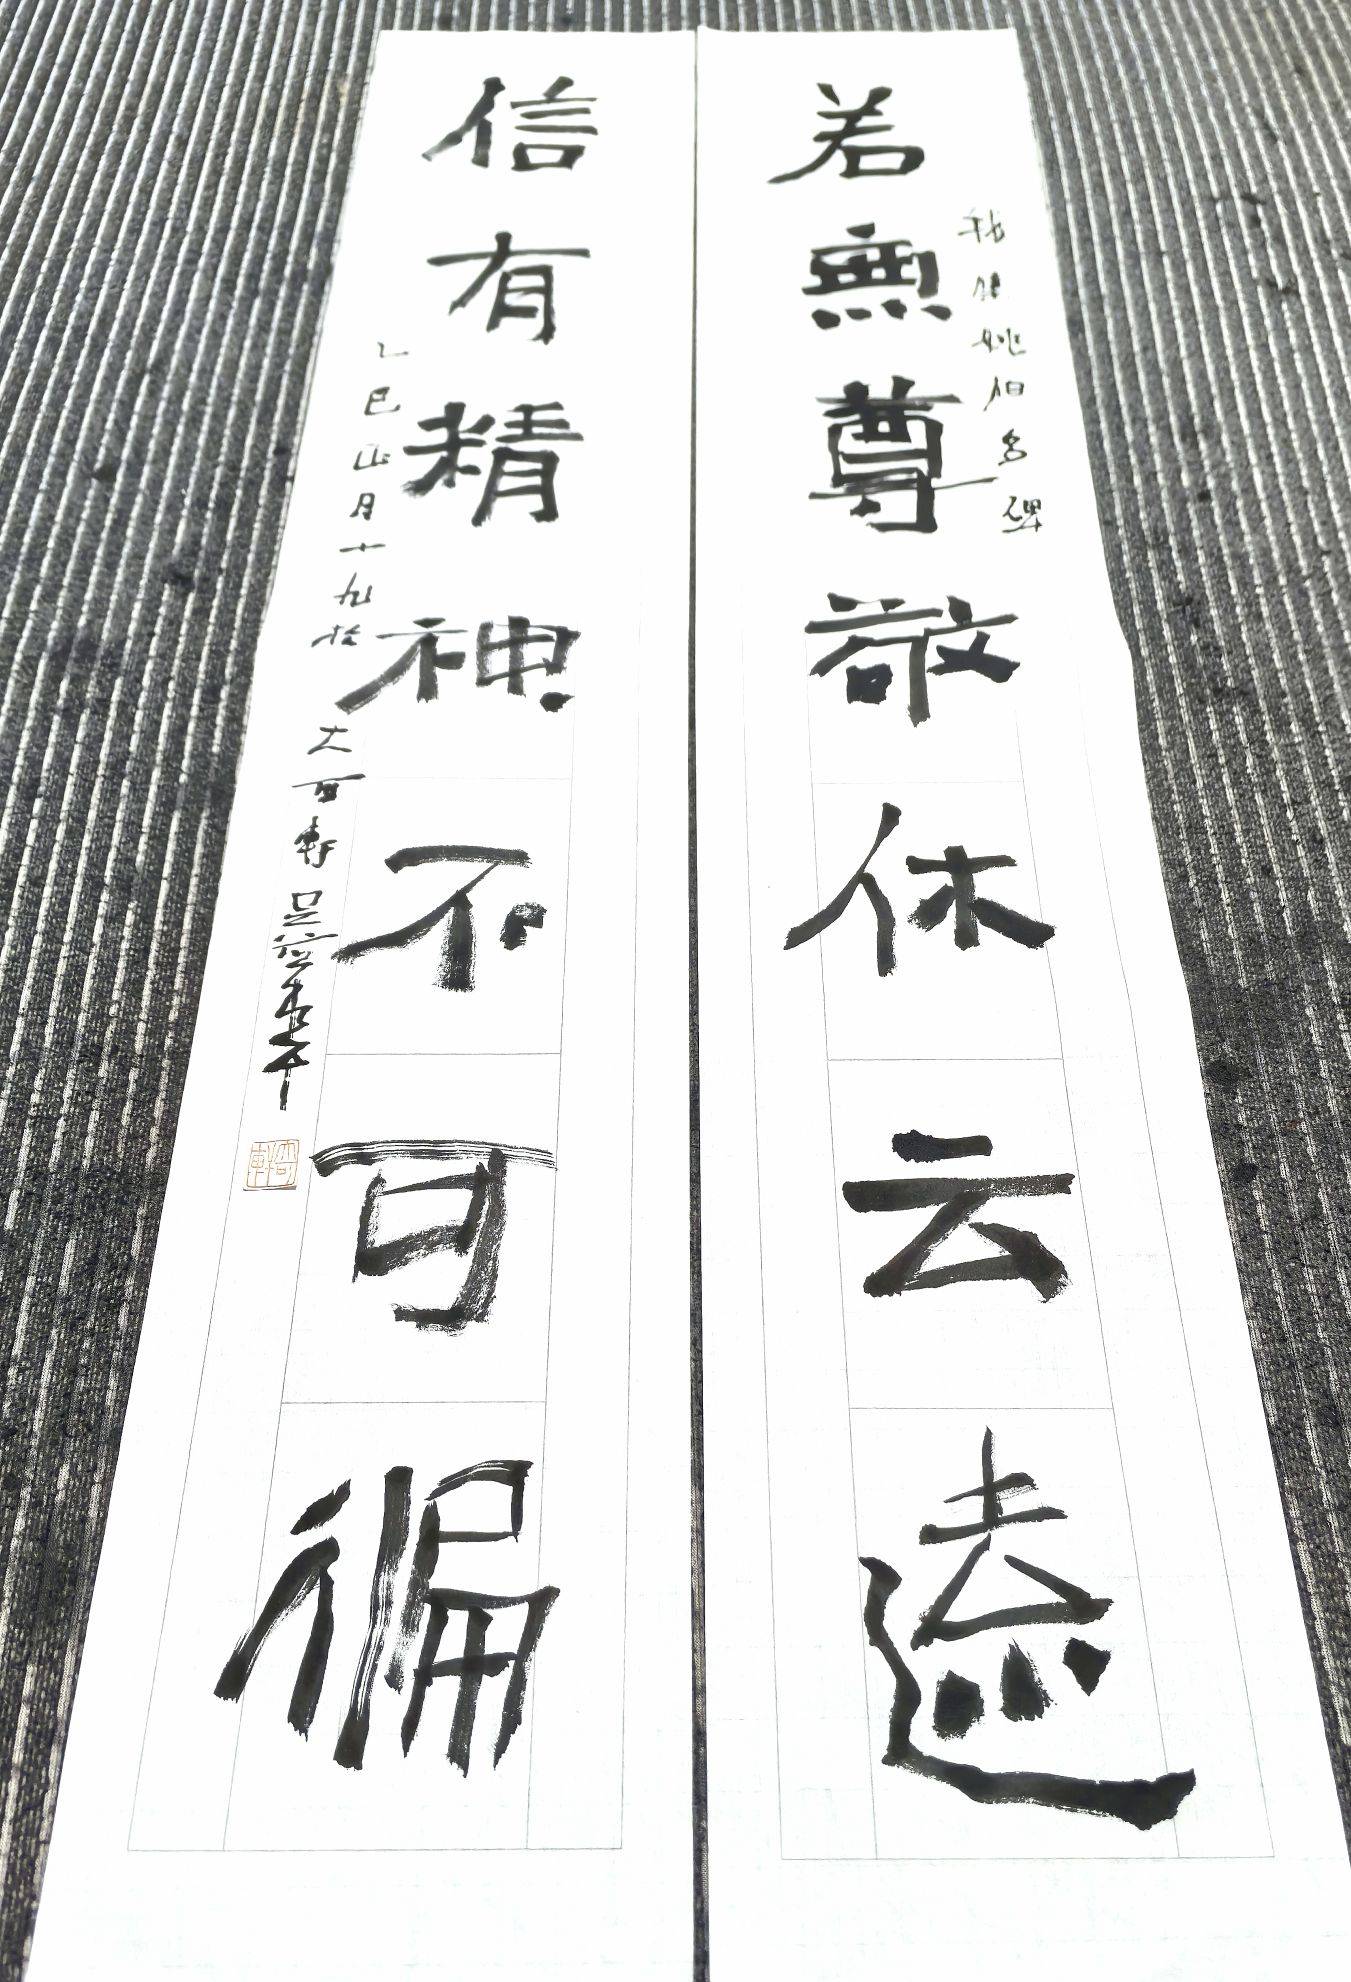 若無尊敬休云遠
姚伯多碑
信有精神不可徧
乙巳正月十九於
大可軒